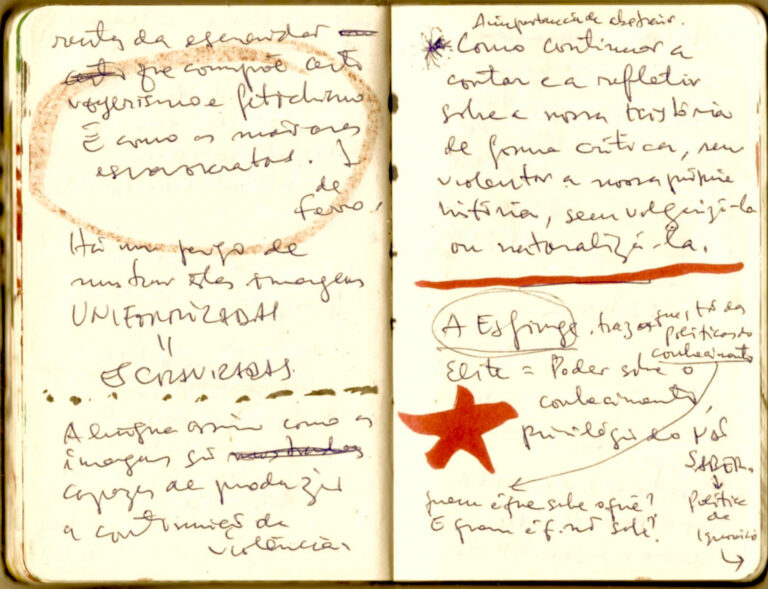 da escravidão
que compõe certo
voyerismo e fetichismo
É como as
escravocratas.
de
ferro.
Há um perigo de
mostrar estas imagens
UNIFORMIZADAS
"
ESCRAVIZADAS
A língua assim como as
imagens são
capazes de produzir
a continuição da
violência.
A importancia de abstrair.
Como continuar a
contar e a refletir
sobre a nossa história
de forma crítica, sem
violentar a nossa própria
história, sem vulgarizá-la
ou naturalizá-la.
A Esfinge. traz
políticas do
conhecimento
Elite = Poder sobre o
conhecimento,
privilégio do NÃO
SABER.
quem é que sabe o quê?
E quem é q. não sabe?
Política
da
Ignorância